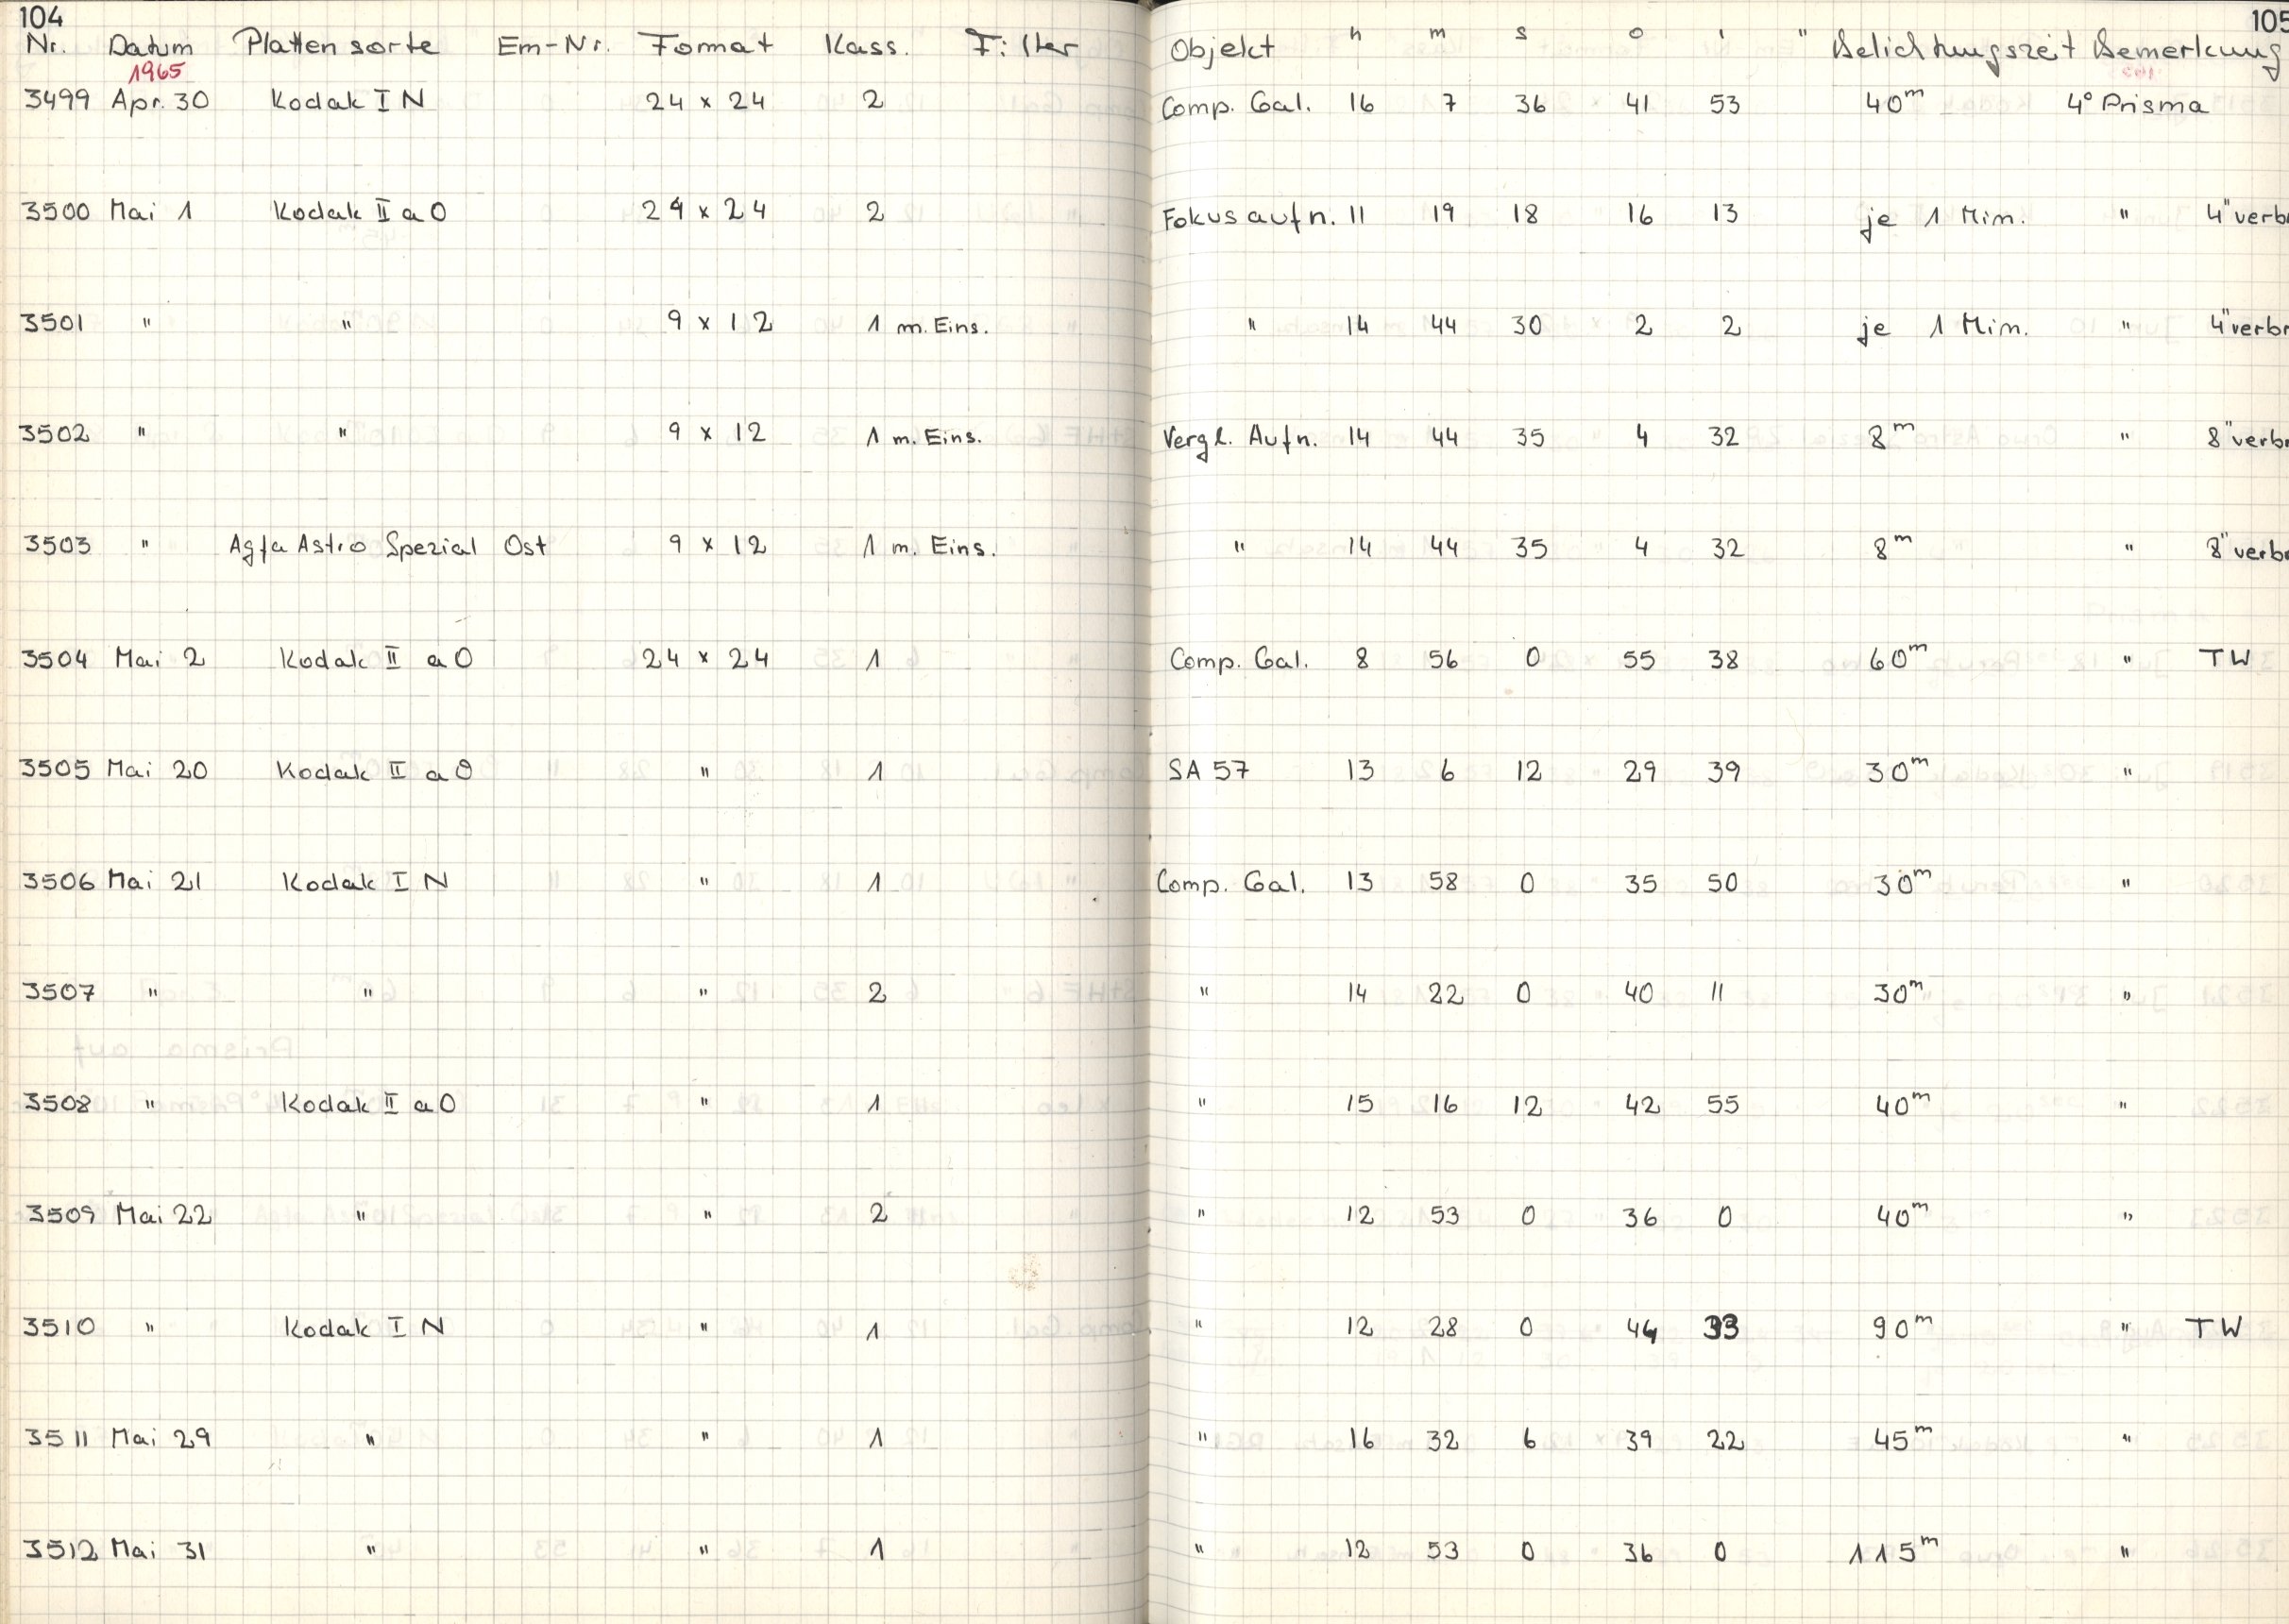 104 105
Nr. Datum Plattensorte Em-Nr. Format Kass. Filter Objekt h m s o ' " Belichtungszeit Bemerkung
1965
3499 Apr. 30 Kodak I N 24 x 24 2 Comp. Gal. 16 7 36 41 53 40m 4° Prisma
3500 Mai 1 Kodak II a O 24 x 24 2 Fokusaufn. 11 19 18 16 13 je 1 Min. " 4" verbr
3501 " " 9 x 12 1 m. Eins. " 14 44 30 2 2 je 1 Min. " 4" verbr
3502 " " 9 x 12 1 m. Eins. Vergl. Aufn. 14 44 35 4 32 8m " 8" verbr
3503 " Agfa Astro Spezial Ost 9 x 12 1 m. Eins. " 14 44 35 4 32 8m " 8" verbr
3504 Mai 2 Kodak II a O 24 x 24 1 Comp. Gal. 8 56 0 55 38 60m " TW
3505 Mai 20 Kodak II a O " 1 SA 57 13 6 12 29 39 30m "
3506 Mai 21 Kodak I N " 1 Comp. Gal. 13 58 0 35 50 30m "
3507 " " " 2 " 14 22 0 40 11 30m "
3508 " Kodak II a O " 1 " 15 16 12 42 55 40m "
3509 Mai 22 " " 2 " 12 53 0 36 0 40m "
3510 " Kodak I N " 1 " 12 28 0 44 33 90m " TW
3511 Mai 29 " " 1 " 16 32 6 39 22 45m "
3512 Mai 31 " " 1 " 12 53 0 36 0 115m "